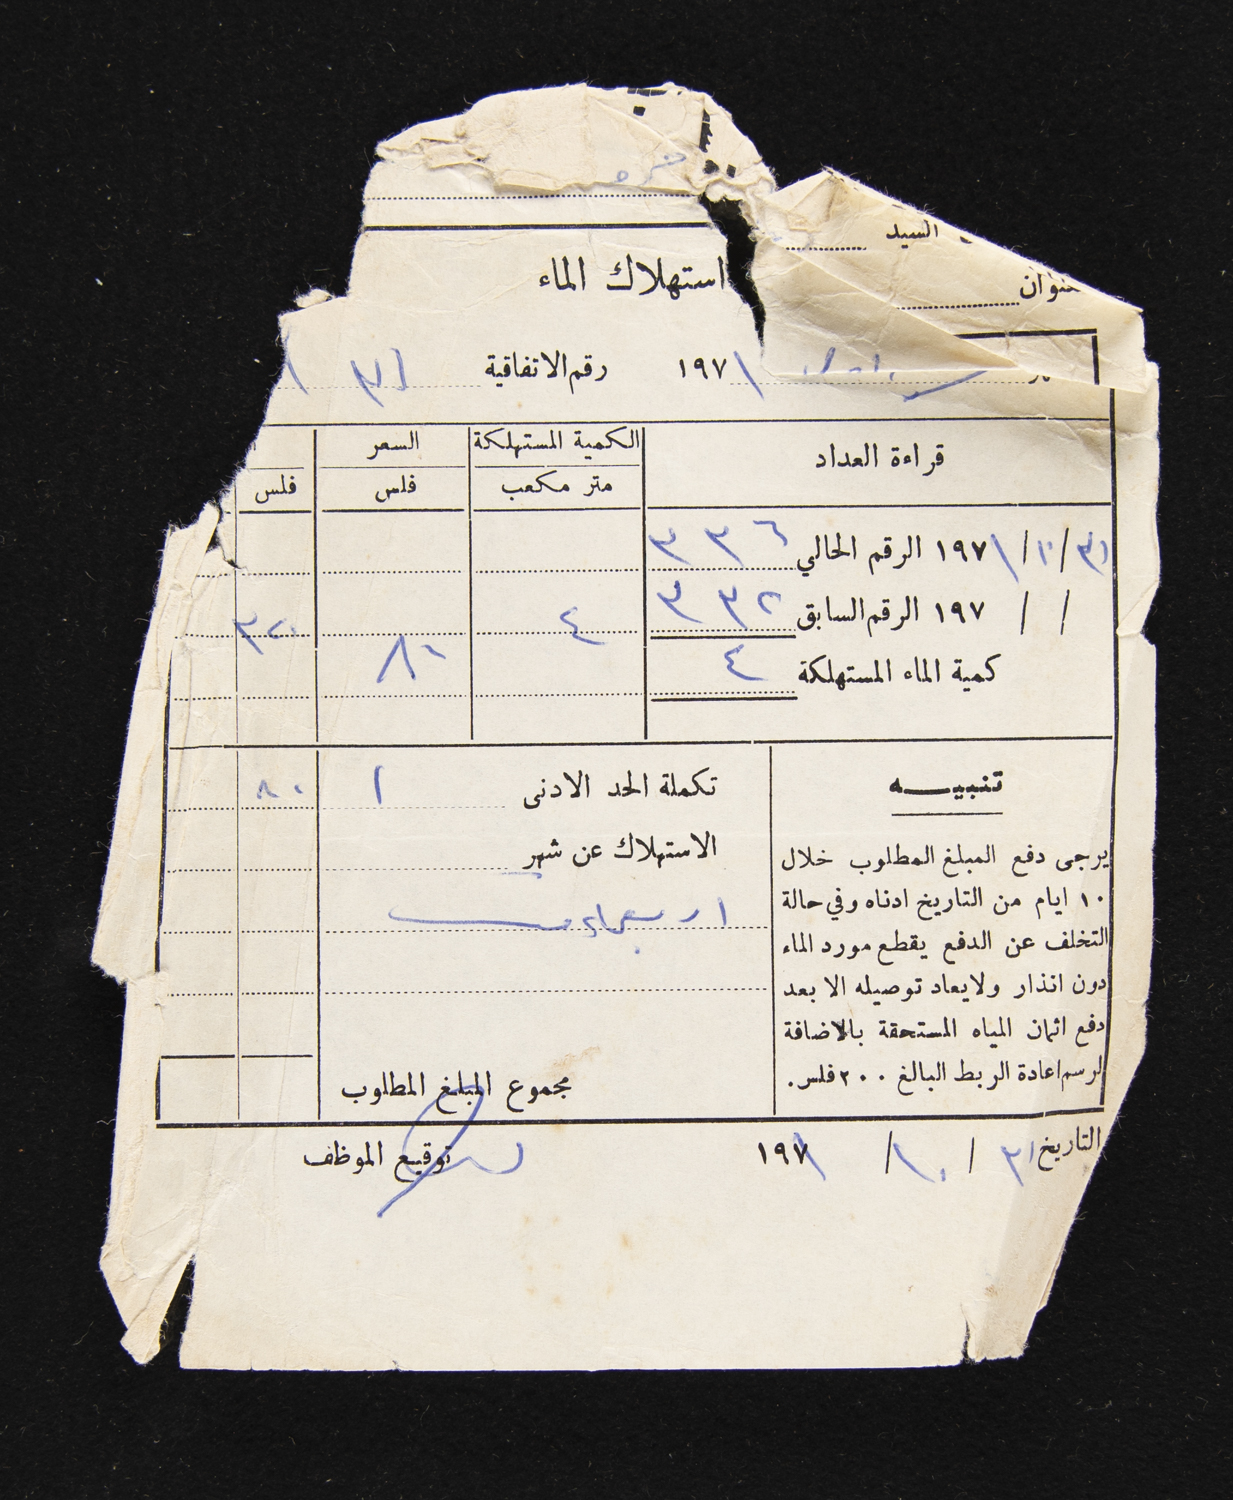 السيد
استهلاك الماء
١٩٧١ رقم الاتفاقية
قراءة العداد الكمية المستهلكة السعر
متر مكعب فلس فلس
٣١/١٠/١٩٧١ الرقم الحالي ٣٣٦
/ / ١٩٧ الرقم السابق ٣٣٢ ٤ ٣٢٠
كمية الماء المستهلكة ٤ ٨٠
تنبيـــه
يرجى دفع المبلغ المطلوب خلال
١٠ ايام من التاريخ ادناه وفي حالة
التخلف عن الدفع يقطع مورد الماء
دون انذار ولا يعاد توصيله الا بعد
دفع اثمان المياه المستحقة بالاضافة
لرسم اعادة الربط البالغ ٢٠٠ فلس.
تكملة الحد الادنى ١ ٨٠
الاستهلاك عن شهر
مجموع المبلغ المطلوب
التاريخ ٣١ / ١٠ / ١٩٧١ توقيع الموظف